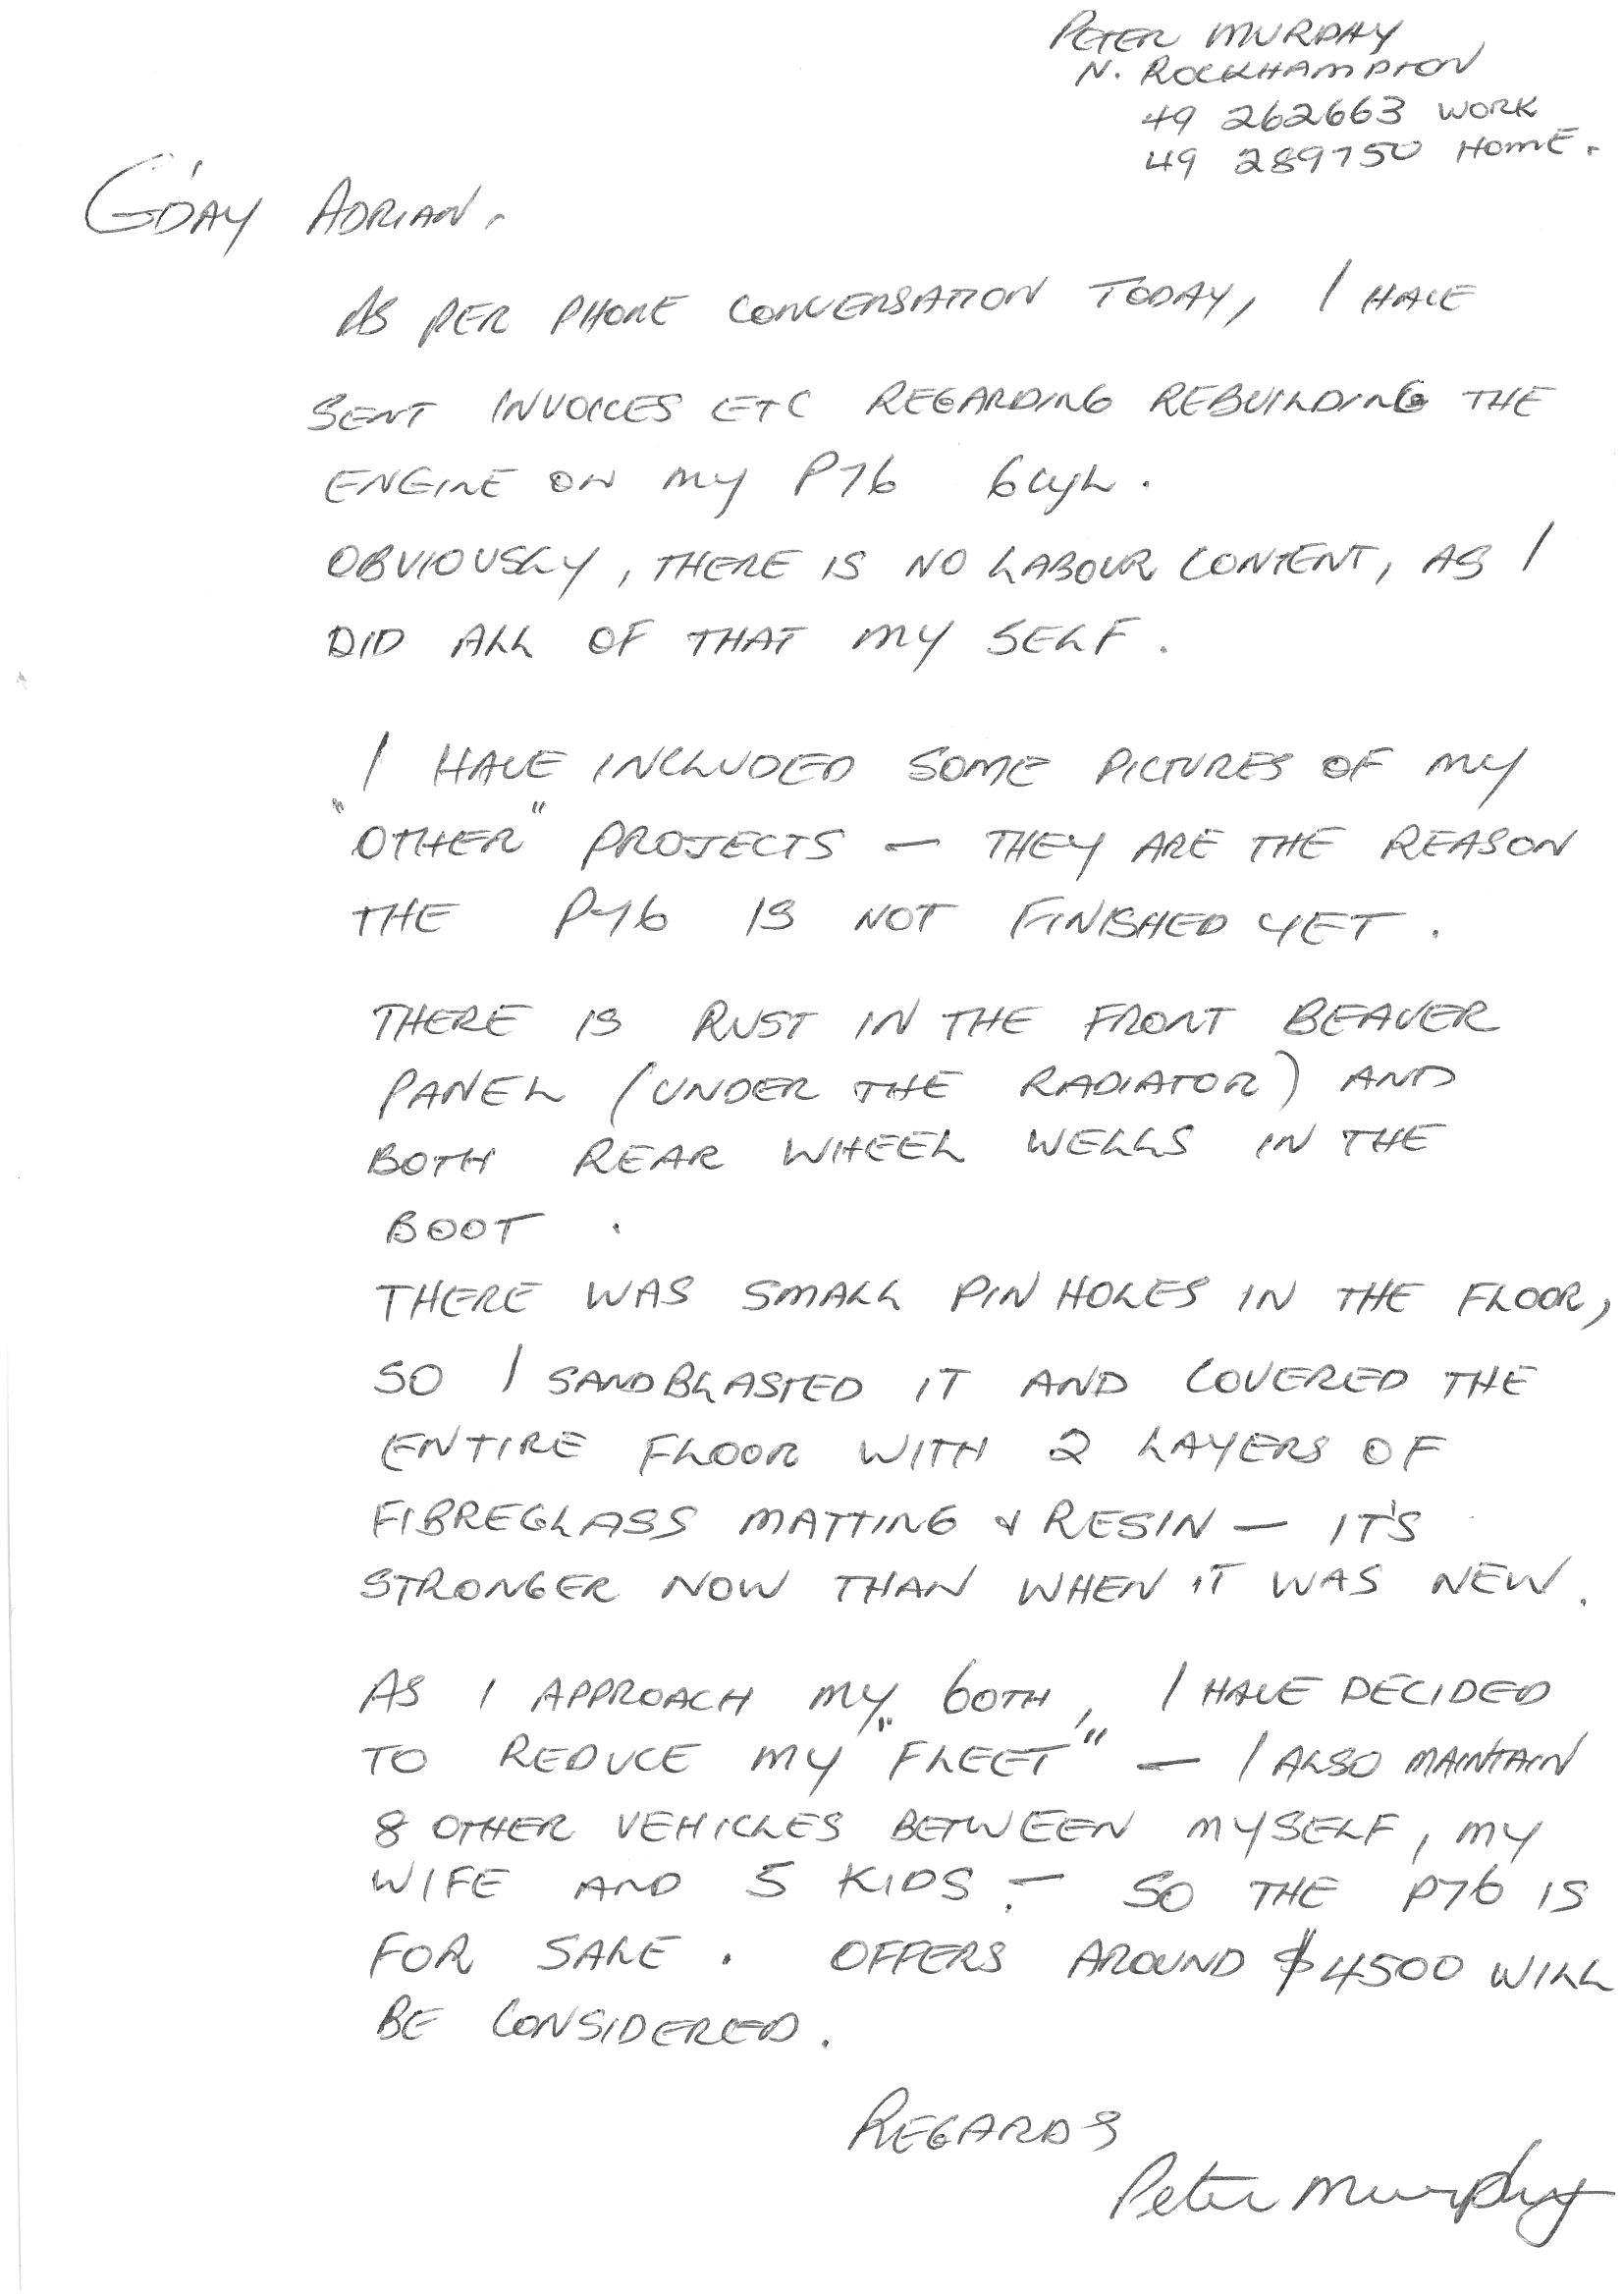 PETER MURPHY
N. ROCKHAMPTON
49 262663 WORK
49 289750 HOME.
G'DAY ADRIAN,
AS PER PHONE CONVERSATION TODAY, I HAVE
SENT INVOICES ETC REGARDING REBUILDING THE
ENGINE ON MY P76 6CYL.
OBVIOUSLY, THERE IS NO LABOUR CONTENT, AS I
DID ALL OF THAT MY SELF.
I HAVE INCLUDED SOME PICTURES OF MY
"OTHER" PROJECTS — THEY ARE THE REASON
THE P76 IS NOT FINISHED YET.
THERE IS RUST IN THE FRONT BEAVER
PANEL (UNDER THE RADIATOR) AND
BOTH REAR WHEEL WELLS IN THE
BOOT.
THERE WAS SMALL PIN HOLES IN THE FLOOR,
SO I SANDBLASTED IT AND COVERED THE
ENTIRE FLOOR WITH 2 LAYERS OF
FIBREGLASS MATTING & RESIN — IT'S
STRONGER NOW THAN WHEN IT WAS NEW.
AS I APPROACH MY 60TH, I HAVE DECIDED
TO REDUCE MY "FLEET" — I ALSO MAINTAIN
8 OTHER VEHICLES BETWEEN MYSELF, MY
WIFE AND 5 KIDS. — SO THE P76 IS
FOR SALE. OFFERS AROUND $4500 WILL
BE CONSIDERED.
REGARDS
Peter Murphy